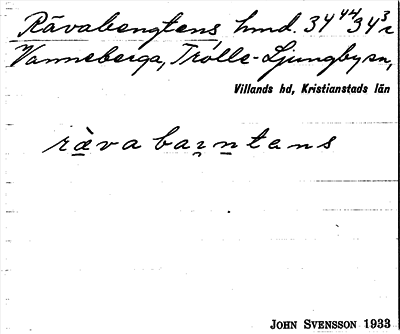 Rävabengtens, hmd. 34⁴⁴ 34³ r
Vanneberga, Trolle-Ljungby sn,
Villands hd, Kristianstads län
rävabarntens
JOHN SVENSSON 1933